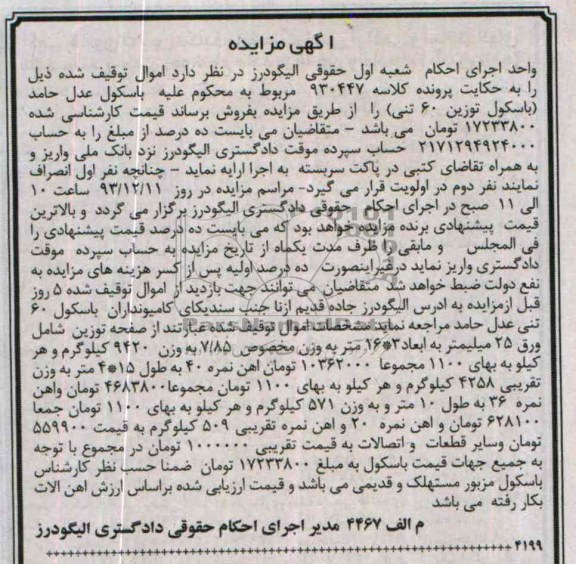 اگهی مزایده
واحد اجرای احکام شعبه اول حقوقی الیگودرز در نظر دارد اموال توقیف شده ذیل
را به حکایت پرونده کلاسه ۹۳۰۴۴۷ مربوط به محکوم علیه باسکول عدل حامد
(باسکول توزین ۶۰ تنی) را از طریق مزایده بفروش برساند قیمت کارشناسی شده
۱۷۲۳۳۸۰۰ تومان می باشد - متقاضیان می بایست ده درصد از مبلغ را به حساب
۲۱۷۱۲۹۴۹۲۴۰۰۰ حساب سپرده موقت دادگستری الیگودرز نزد بانک ملی واریز و
به همراه تقاضای کتبی در پاکت سربسته به اجرا ارایه نماید - چنانچه نفر اول انصراف
نمایند نفر دوم در اولویت قرار می گیرد- مراسم مزایده در روز ۹۳/۱۲/۱۱ ساعت ۱۰
الی ۱۱ صبح در اجرای احکام حقوقی دادگستری الیگودرز برگزار می گردد و بالاترین
قیمت پیشنهادی برنده مزایده خواهد بود که می بایست ده درصد قیمت پیشنهادی را
فی المجلس و مابقی را ظرف مدت یکماه از تاریخ مزایده به حساب سپرده موقت
دادگستری واریز نماید درغیراینصورت ده درصد اولیه پس از کسر هزینه های مزایده به
نفع دولت ضبط خواهد شد متقاضیان می توانند جهت بازدید از اموال توقیف شده ۵ روز
قبل ازمزایده به ادرس الیگودرز جاده قدیم ازنا جنب سندیکای کامیونداران باسکول ۶۰
تنی عدل حامد مراجعه نماید مشخصات اموال توقیف شده عبارتند از صفحه توزین شامل
ورق ۲۵ میلیمتر به ابعاد۳*۱۶ متر به وزن مخصوص ۷/۸۵ به وزن ۹۴۲۰ کیلوگرم و هر
کیلو به بهای ۱۱۰۰ مجموعا ۱۰۳۶۲۰۰۰ تومان اهن نمره ۴۰ به طول ۱۵*۴ متر به وزن
تقریبی ۴۲۵۸ کیلوگرم و هر کیلو به بهای ۱۱۰۰ تومان مجموعا۴۶۸۳۸۰۰ تومان واهن
نمره ۳۶ به طول ۱۰ متر و به وزن ۵۷۱ کیلوگرم و هر کیلو به بهای ۱۱۰۰ تومان جمعا
۶۲۸۱۰۰ تومان و اهن نمره ۲۰ و اهن نمره تقریبی ۵۰۹ کیلوگرم به قیمت ۵۵۹۹۰۰
تومان وسایر قطعات و اتصالات به قیمت تقریبی ۱۰۰۰۰۰۰ تومان در مجموع با توجه
به جمیع جهات قیمت باسکول به مبلغ ۱۷۲۳۳۸۰۰ تومان ضمنا حسب نظر کارشناس
باسکول مزبور مستهلک و قدیمی می باشد و قیمت ارزیابی شده براساس ارزش اهن الات
بکار رفته می باشد
م الف ۴۴۶۷ مدیر اجرای احکام حقوقی دادگستری الیگودرز
۴۱۹۹